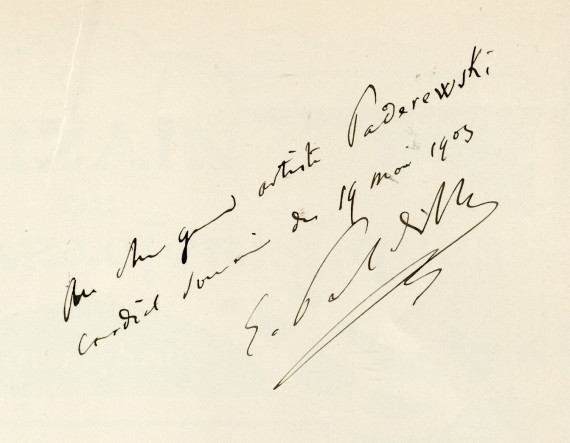 Au cher grand artiste Paderewski
cordial souvenir du 19 mai 1903
E. Paladilhe